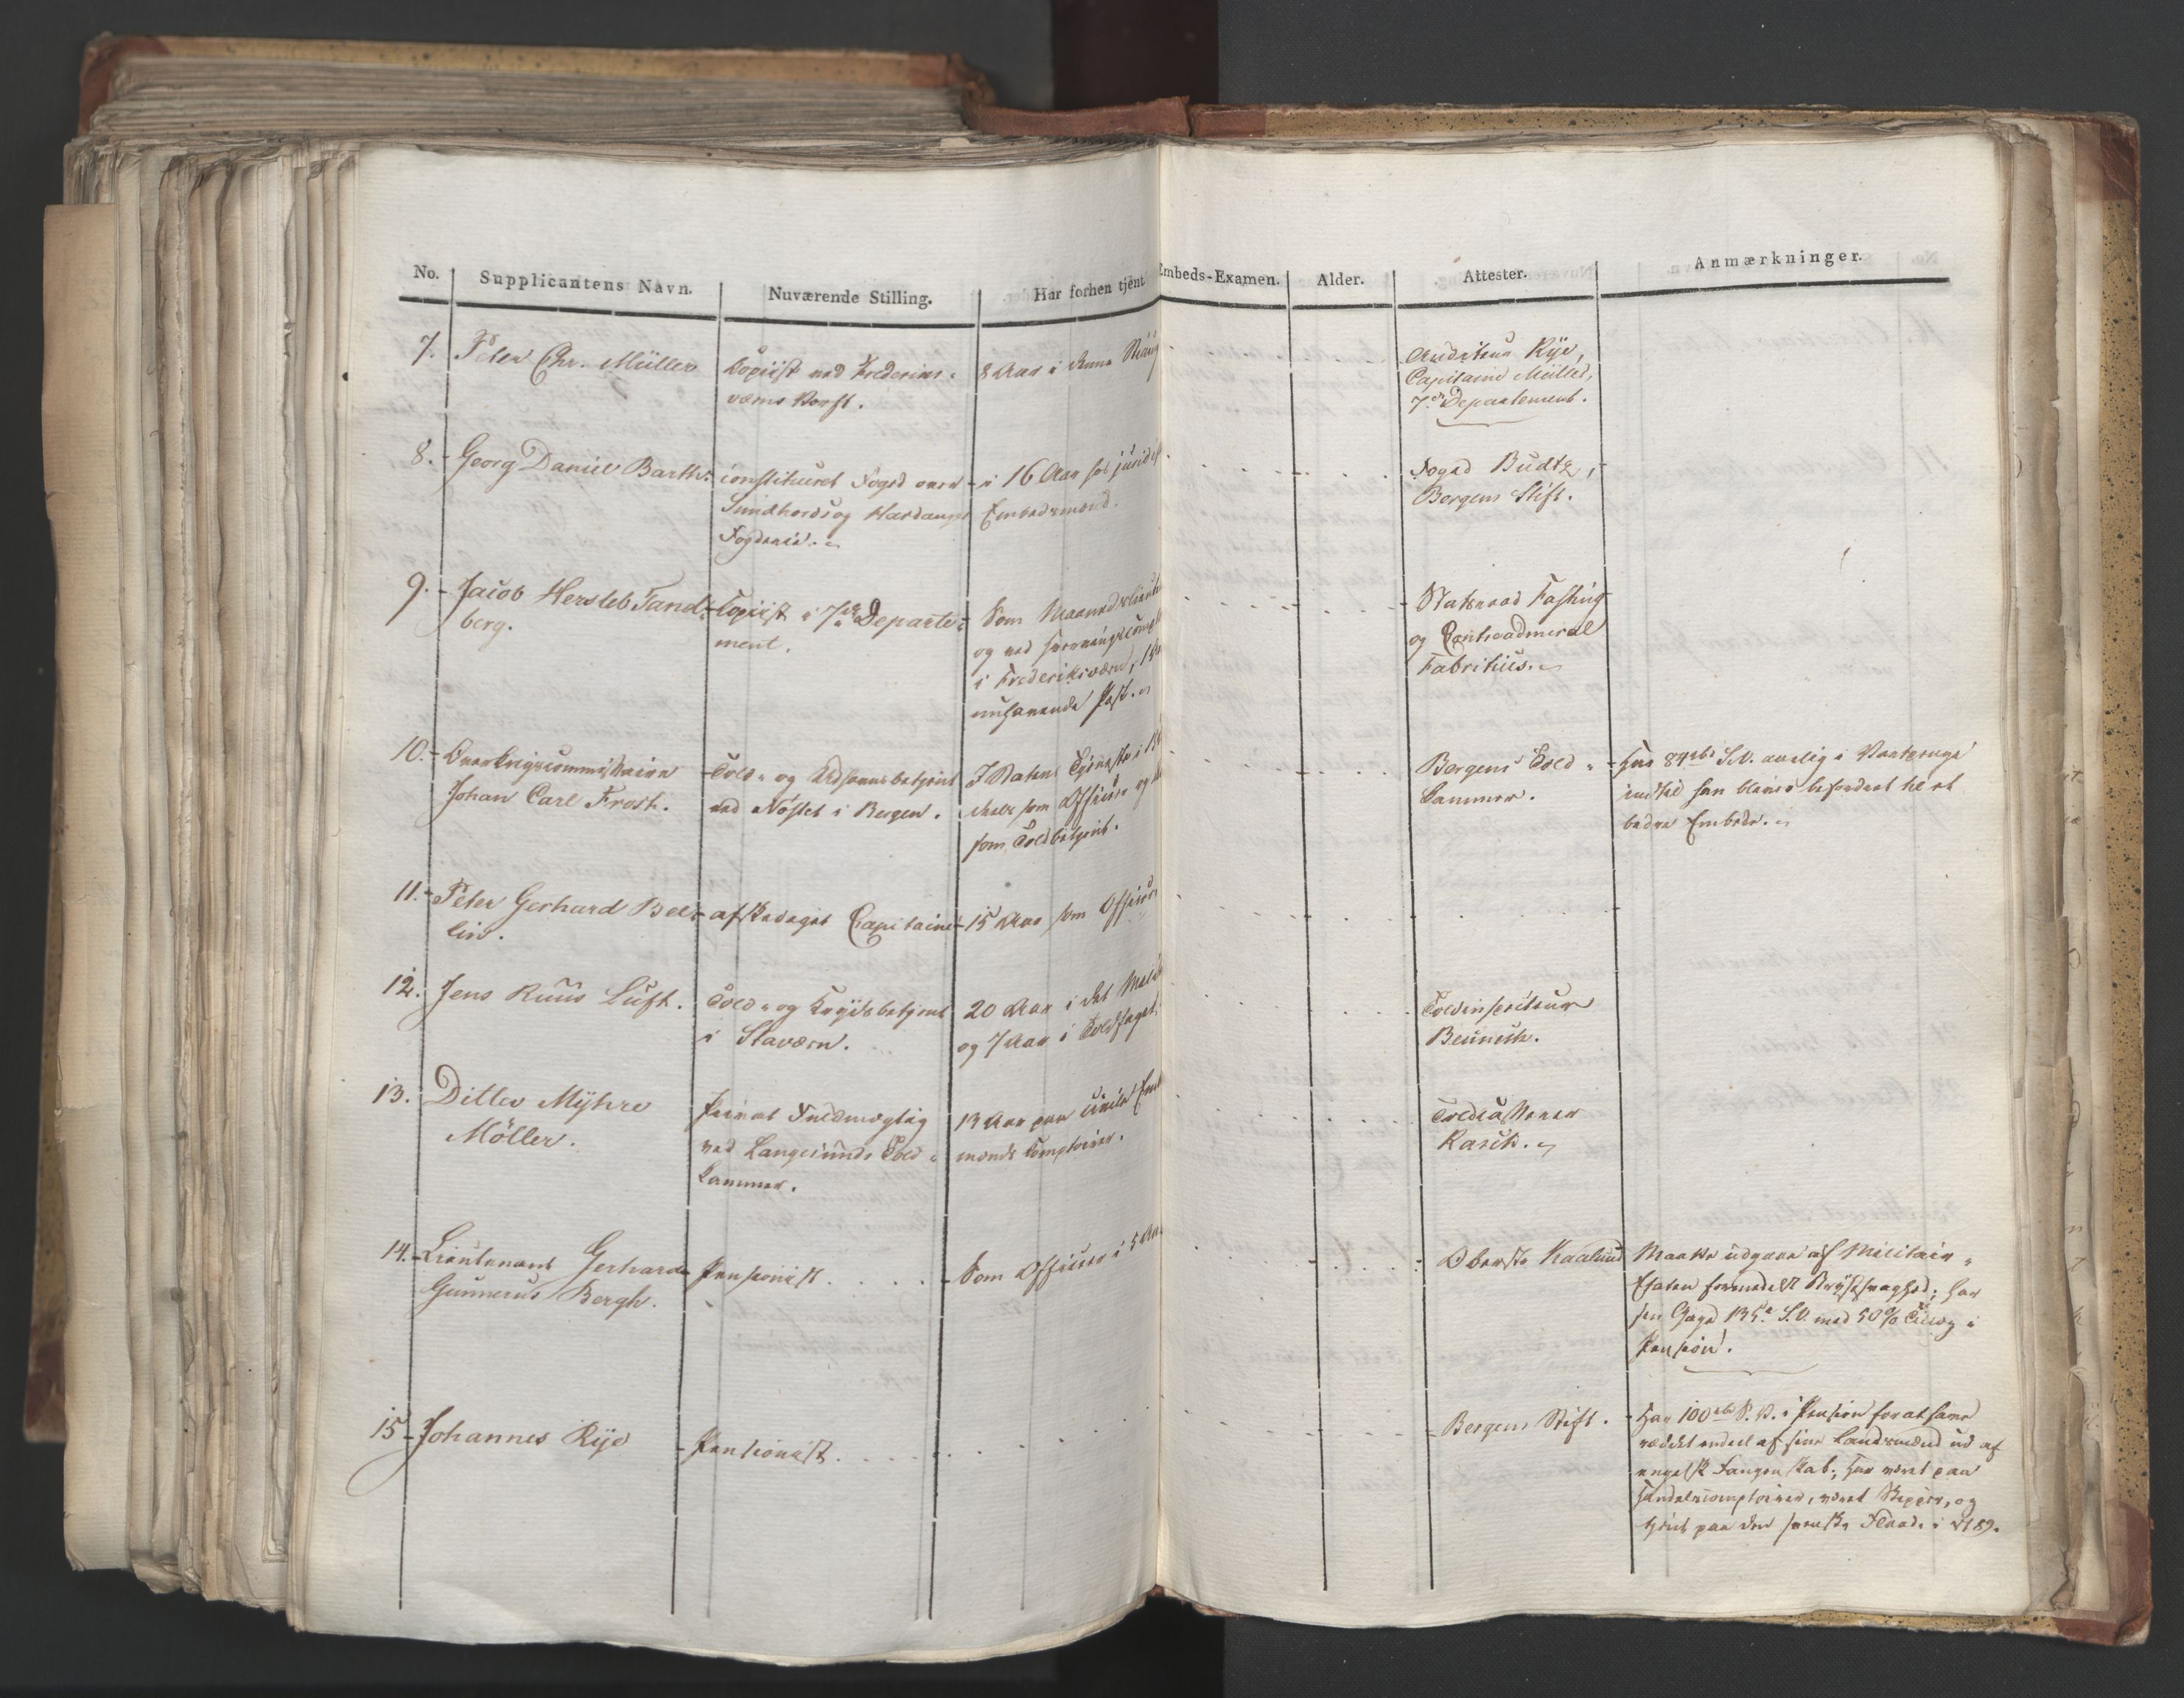 No. Supplicantens Navn. Nuværende Stilling. Har forhen tjent. Embeds-Examen. Alder. Attester. Anmærkninger.
7. Peter Chr. Müller
Copiist ved Frederiks-
værns Værft.
8 Aar i denne
Auditeur Rye,
Capitaine Müller,
7de Departement.
8. Georg Daniel Barth.
constitueret Foged over
Sundhords og Hardanger
Fogderie.
i 16 Aar for
Embedsmænd.
Foged Budtz,
Bergens Stift.
9. Jacob Hersleb Tand-
berg.
Copiist i 7de Departe-
ment.
Som Maaneds
og ved
i Frederiksværn,
nuhavende Post.
Statsraad Fasting
og Contreadmiral
Fabritius.
10. Overkrigscommissair
Johan Carl Frost.
Told- og betjent
ved Nöstet i Bergen.
I Statens Tjeneste i
deels som Officier og
som Toldbetjent.
Bergens Told-
kammer.
Har 84 S.V. aarlig i Vartpenge
indtil han bliver befordret til et
bedre Embede.
11. Peter Gerhard Bel-
lin.
afskediget Capitaine
15 Aar som Officier
12. Jens Ruus Luft.
Told- og Krydsbetjent
i Staværn.
20 Aar i det
og 7 Aar i Toldfaget.
Toldinspecteur
Beünich.
13. Ditlev Myhre
Möller.
privat Fuldmægtig
ved Langesunds Told-
kammer.
13 Aar paa civile
mænds Comptoirer.
Toldcasserer
Rasch.
14. Lieutenant Gerhard
Gunnerus Bergh.
Pensionist.
Som Officier i 5 Aar
Oberste Kaalund
Maatte udgaae af Militair-
Etaten formedelst Brystsvaghed; har
sin Gage 135 S.V. med 50% Tillæg i
Pension.
15. Johannes Rye
Pensionist.
Bergens Stift.
Har 100 S.V. i Pension for at have
reddet endeel af sine Landsmænd ud af
engelsk Fangenskab; har været paa
Handelscomptoirer, været Skipper, og
tjent paa den svenske Flaade i 1789.